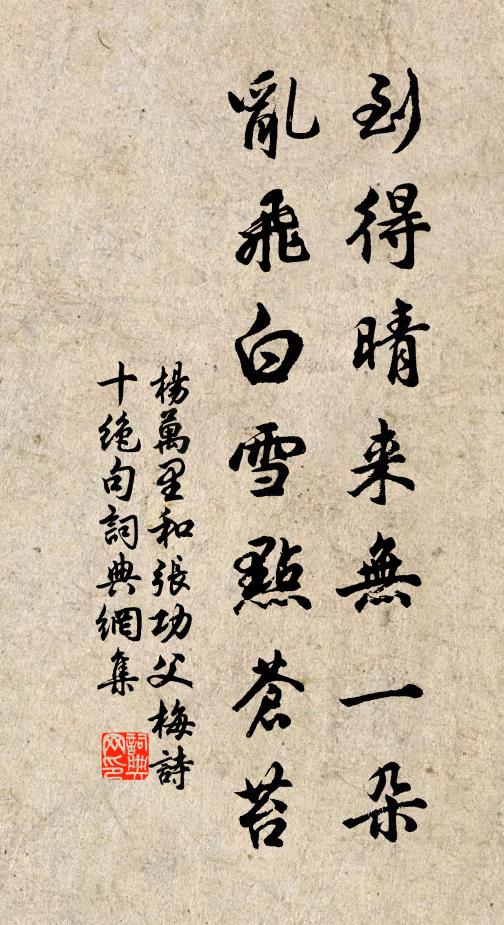 到得晴来無一朵
亂飛白雪點蒼苔
楊萬里和張功父梅詩
十絶句詞典網集
詞典网印